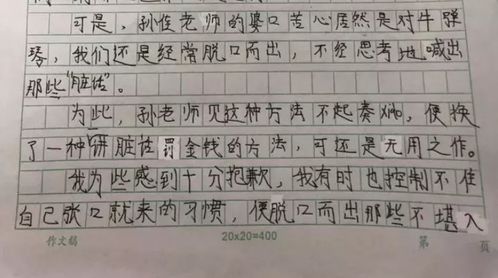 可是，孙俊老师的婆口苦心居然是对牛弹
琴，我们还是经常脱口而出，不经思考地喊出
那些"脏话"。
为此，孙老师见这种方法不起奏效，便换
了一种讲脏话罚金钱的方法，可还是无用之作。
我为些感到十分抱歉，我有时也控制不住
自己张口就来的习惯，便脱口而出那些不堪入
作文稿 20x20=400 第 页